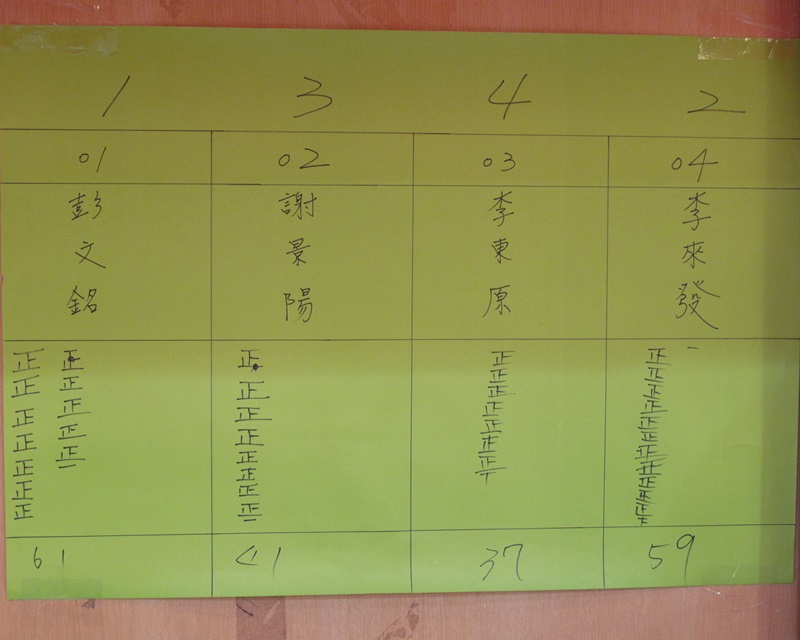 1 3 4 2
01 02 03 04
彭文銘
謝景陽
李東原
李來發
正正正正正正正
正正正正正一
正正正正正正正正一
正正正正正正正丅
正正正正正正正正正正正
一
61 41 37 59